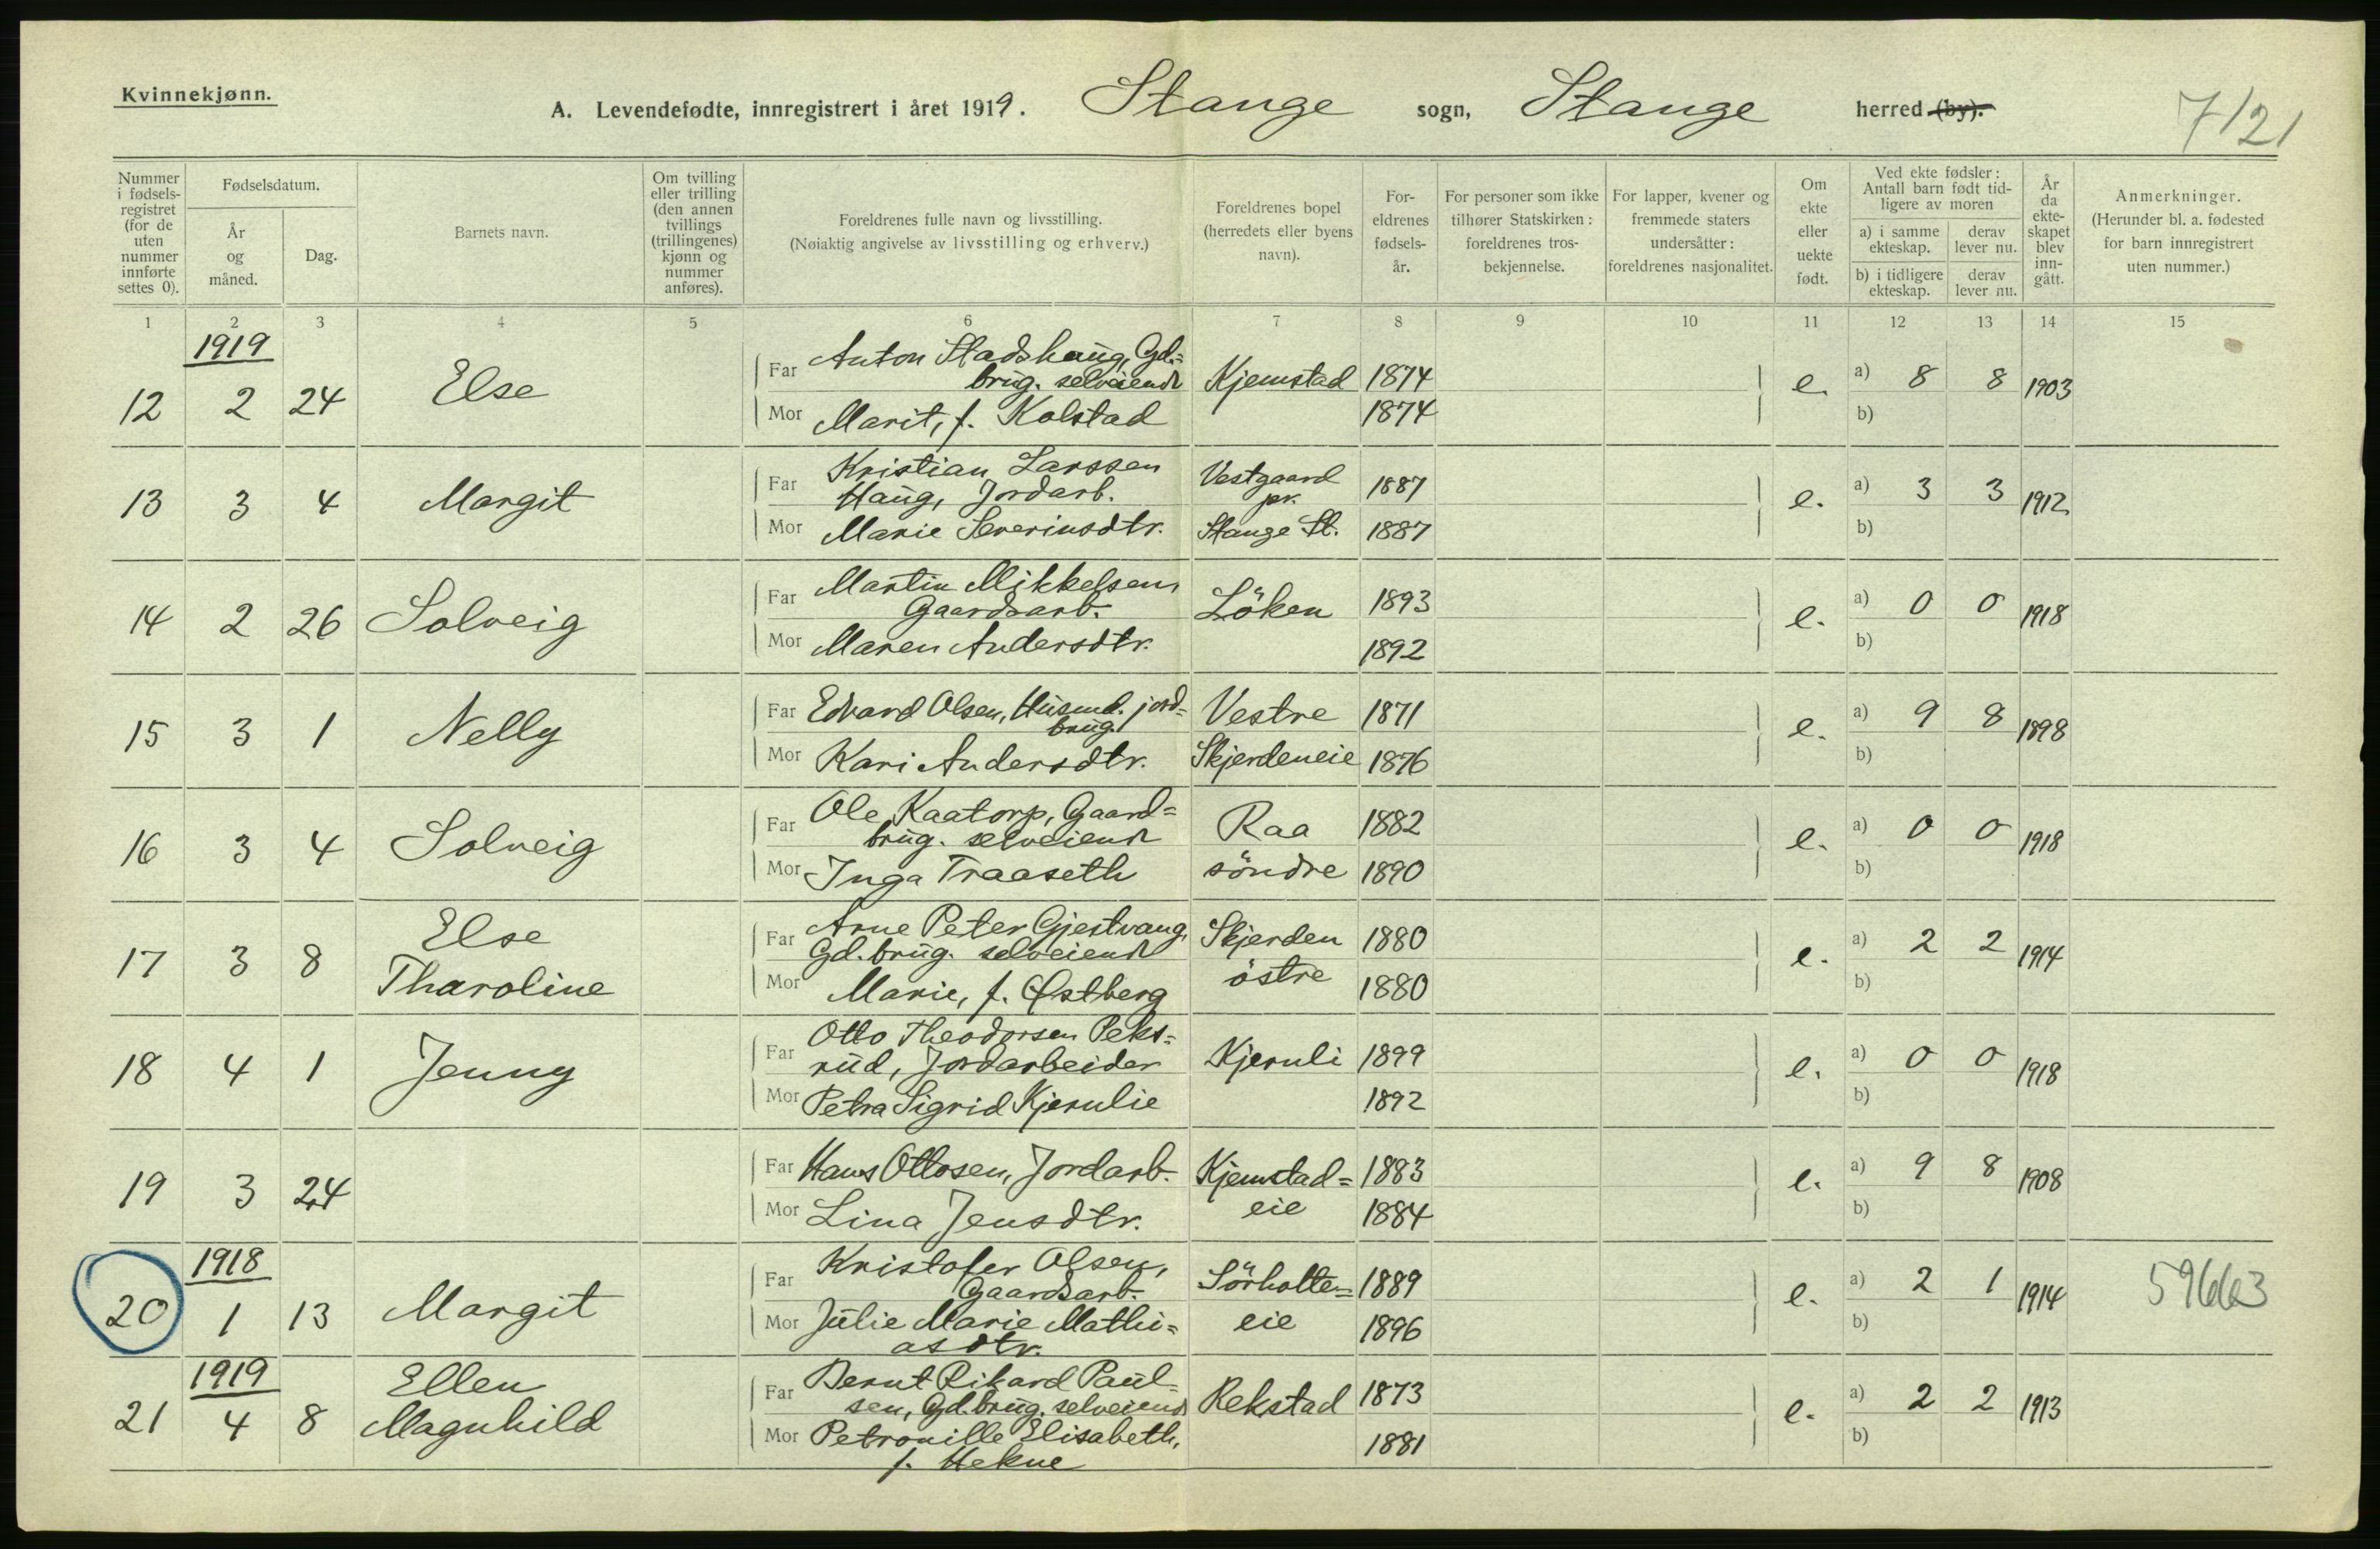 Kvinnekjønn.
A. Levendefødte, innregistrert i året 1919. Stange sogn, Stange herred (by).
7/21
Nummer i fødselsregistret (for de uten nummer innførte settes 0).
Fødselsdatum.
År og måned.
Dag.
Barnets navn.
Om tvilling eller trilling (den annen tvillings (trillingenes) kjønn og nummer anføres).
Foreldrenes fulle navn og livsstilling.
(Nøiaktig angivelse av livsstilling og erhverv.)
Foreldrenes bopel (herredets eller byens navn).
For-eldrenes fødsels-år.
For personer som ikke tilhører Statskirken: foreldrenes tros-bekjennelse.
For lapper, kvener og fremmede staters undersåtter: foreldrenes nasjonalitet.
Om ekte eller uekte født.
Ved ekte fødsler: Antall barn født tid-ligere av moren
a) i samme ekteskap.
derav lever nu.
b) i tidligere ekteskap.
derav lever nu.
År da ekte-skapet blev inn-gått.
Anmerkninger.
(Herunder bl. a. fødested for barn innregistrert uten nummer.)
1 2 3 4 5 6 7 8 9 10 11 12 13 14 15
1919
12 2 24 Else
Far Anton Stadshaug, Gd.=
brug. selveiend
Kjemstad 1874 e. a) 8 8 1903
Mor Marit, f. Kolstad 1874 b)
13 3 4 Margit
Far Kristian Larssen
Haug, Jordarb.
Vestgaard
pr.
1887 e. a) 3 3 1912
Mor Marie Severinsdtr. Stange St. 1887 b)
14 2 26 Solveig
Far Martin Mikkelsen,
Gaardsarb.
Löken 1893 e. a) 0 0 1918
Mor Maren Andersdtr. 1892 b)
15 3 1 Nelly
Far Edvard Olsen, Husmd. jord=
brug.
Vestre 1871 e. a) 9 8 1898
Mor Kari Andersdtr. Skjerdeneie 1876 b)
16 3 4 Solveig
Far Ole Kaatorp, Gaard=
brug. selveiend
Raa 1882 e. a) 0 0 1918
Mor Inga Traaseth söndre 1890 b)
17 3 8 Else
Tharoline
Far Arne Peter Gjestvang,
Gd.brug. selveiend
Skjerden 1880 e. a) 2 2 1914
Mor Marie, f. Østberg östre 1880 b)
18 4 1 Jenny
Far Otto Theodorsen Peks=
rud, Jordarbeider
Kjeruli 1899 e. a) 0 0 1918
Mor Petra Sigrid Kjerulie 1892 b)
19 3 24
Far Hans Ottosen, Jordarb. Kjemstad= 1883 e. a) 9 8 1908
Mor Lina Jensdtr. eie 1884 b)
1918
20 1 13 Margit
Far Kristofer Olsen,
Gaardsarb.
Sörholte= 1889 e. a) 2 1 1914 59663
Mor Julie Marie Mathi=
asdtr.
eie 1896 b)
1919
21 4 8 Ellen
Magnhild
Far Bernt Rikard Paul=
sen, Gd.brug. selveiend
Rekstad 1873 e. a) 2 2 1913
Mor Petronille Elisabeth,
f. Hekne
1881 b)